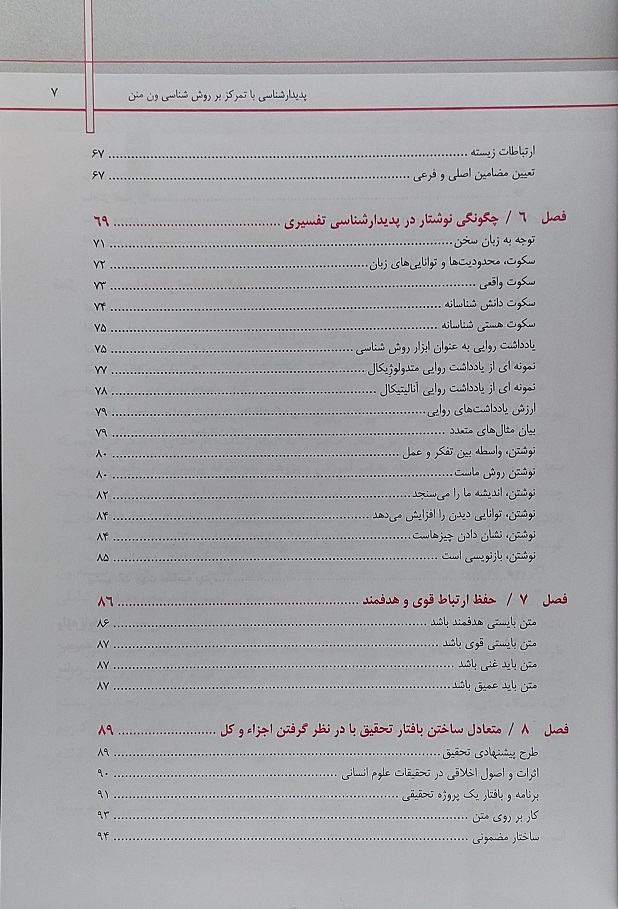 پدیدارشناسی با تمرکز بر روش شناسی ون منن ۷
ارتباطات زیسته ۶۷
تعیین مضامین اصلی و فرعی ۶۷
فصل ۶ / چگونگی نوشتار در پدیدارشناسی تفسیری ۶۹
توجه به زبان سخن ۷۱
سکوت، محدودیت‌ها و توانایی‌های زبان ۷۲
سکوت واقعی ۷۳
سکوت دانش شناسانه ۷۴
سکوت هستی شناسانه ۷۵
یادداشت روایی به عنوان ابزار روش شناسی ۷۵
نمونه ای از یادداشت روایی متدولوژیکال ۷۷
نمونه ای از یادداشت روایی آنالیتیکال ۷۸
ارزش یادداشت‌های روایی ۷۹
بیان مثال‌های متعدد ۷۹
نوشتن، واسطه بین تفکر و عمل ۸۰
نوشتن روش ماست ۸۰
نوشتن، اندیشه ما را می‌سنجد ۸۲
نوشتن، توانایی دیدن را افزایش می‌دهد ۸۴
نوشتن، نشان دادن چیزهاست ۸۴
نوشتن، بازنویسی است ۸۵
فصل ۷ / حفظ ارتباط قوی و هدفمند ۸۶
متن بایستی هدفمند باشد ۸۶
متن بایستی قوی باشد ۸۷
متن باید غنی باشد ۸۷
متن باید عمیق باشد ۸۷
فصل ۸ / متعادل ساختن بافتار تحقیق با در نظر گرفتن اجزاء و کل ۸۹
طرح پیشنهادی تحقیق ۸۹
اثرات و اصول اخلاقی در تحقیقات علوم انسانی ۹۰
برنامه و بافتار یک پروژه تحقیقی ۹۱
کار بر روی متن ۹۳
ساختار مضمونی ۹۴